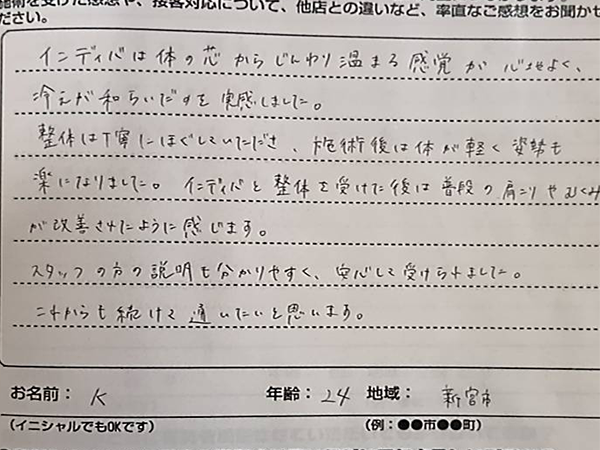 施術を受けた感想や、接客対応について、他店との違いなど、率直なご感想をお聞かせ
ださい。
インディバは体の芯からじんわり温まる感覚が心地よく、
冷えが和らいだのを実感しました。
整体は丁寧にほぐしていただき、施術後は体が軽く姿勢も
楽になりました。インディバと整体を受けた後は普段の肩こりやむくみ
が改善されたように感じます。
スタッフの方の説明も分かりやすく、安心して受けられました。
これからも続けて通いたいと思います。
お名前： K 年齢： 24 地域： 新宮市
(イニシャルでもOKです) (例：●●市●●町)